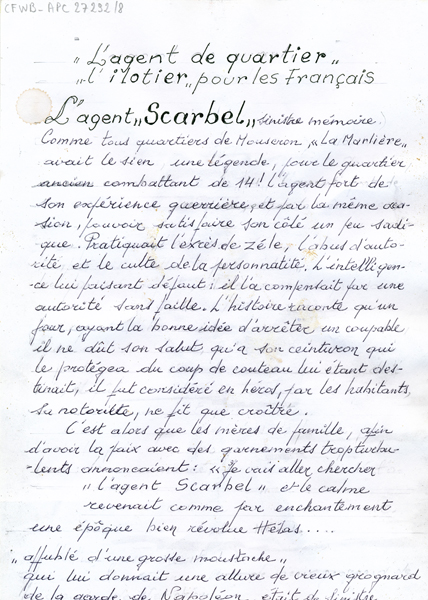 CFWB-APC 27292/8
"L'agent de quartier"
"l'ilotier" pour les Français
L'agent "Scarbel" sinistre mémoire
Comme tous quartiers de Mouscron, "La Marlière"
avait le sien une légende, pour le quartier
ancien combattant de 14! l'agent fort de
son expérience guerrière, et par la même oca-
sion, pouvoir satisfaire son côté un peu sadi-
que. Pratiquait l'exrès de zéle, l'abus d'auto-
rité et le culte de la personnatité. L'intelligen-
ce lui faisant défaut: il l'a compensait par une
autorité sans faille. L'histoire raconte qu'un
jour, ayant la bonne idée d'arrêter un coupable
il ne dût son salut, qu'a son ceinturon qui
le protégea du coup de couteau lui étant des-
tinait, il fut considéré en héros, par les habitants,
Su notorilté, ne fit que croître.
C'est alors que les mères de famille, afin
d'avoir la paix avec des garnements trop turbu-
lents annoncaient: "Je vais aller chercher
"l'agent Scarbel" et le calme
revenait comme par enchantement
une époque bien révolue Hélas....
"affublé d'une grosse moustache"
qui lui donnait une allure de vieux grognard
de la garde de Napoléon, était de sinistre